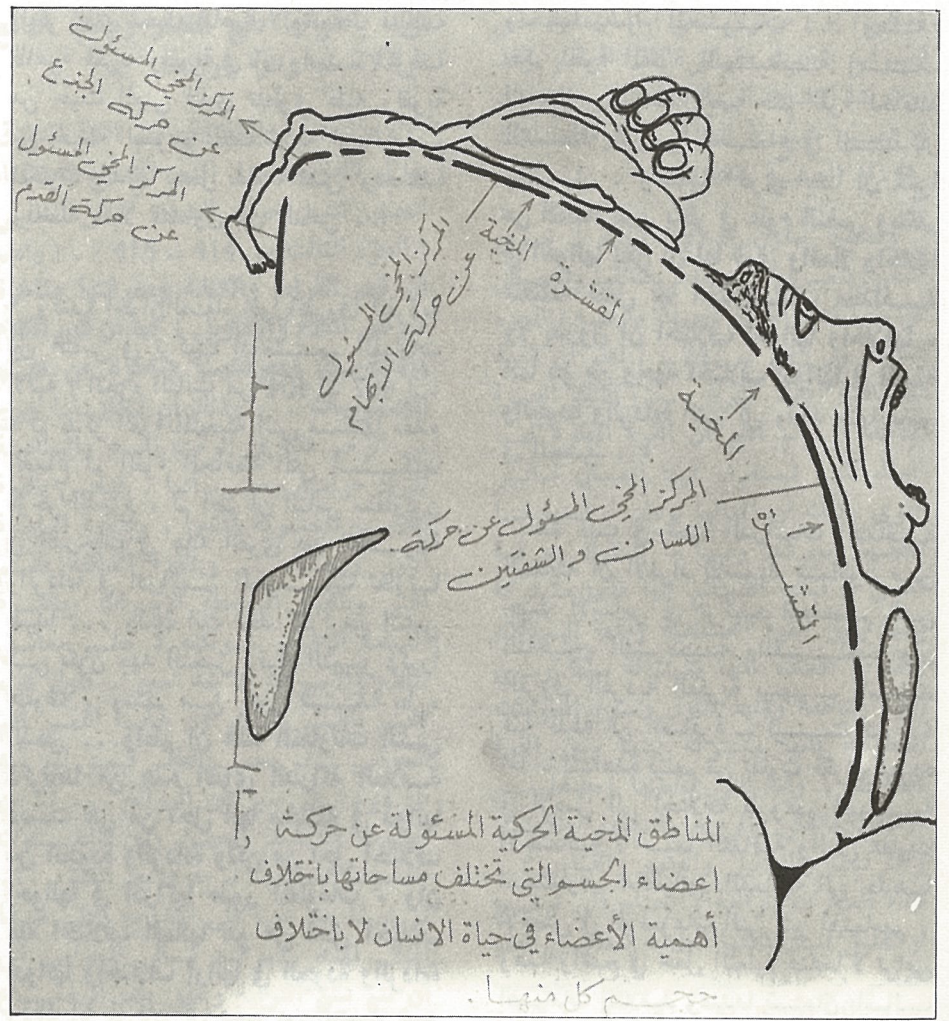 المركز المخي المسئول
عن حركة الجذع
المركز المخي المسئول
عن حركة القدم
المركز المخي المسئول
عن حركة الابهام
المخية
القشرة
المخية
القشرة
المركز المخي المسئول عن حركة
اللسان والشفتين
المناطق المخية الحركية المسئولة عن حركة
اعضاء الجسم والتي تختلف مساحاتها باختلاف
أهمية الأعضاء في حياة الانسان لا باختلاف
حجم كل منها .